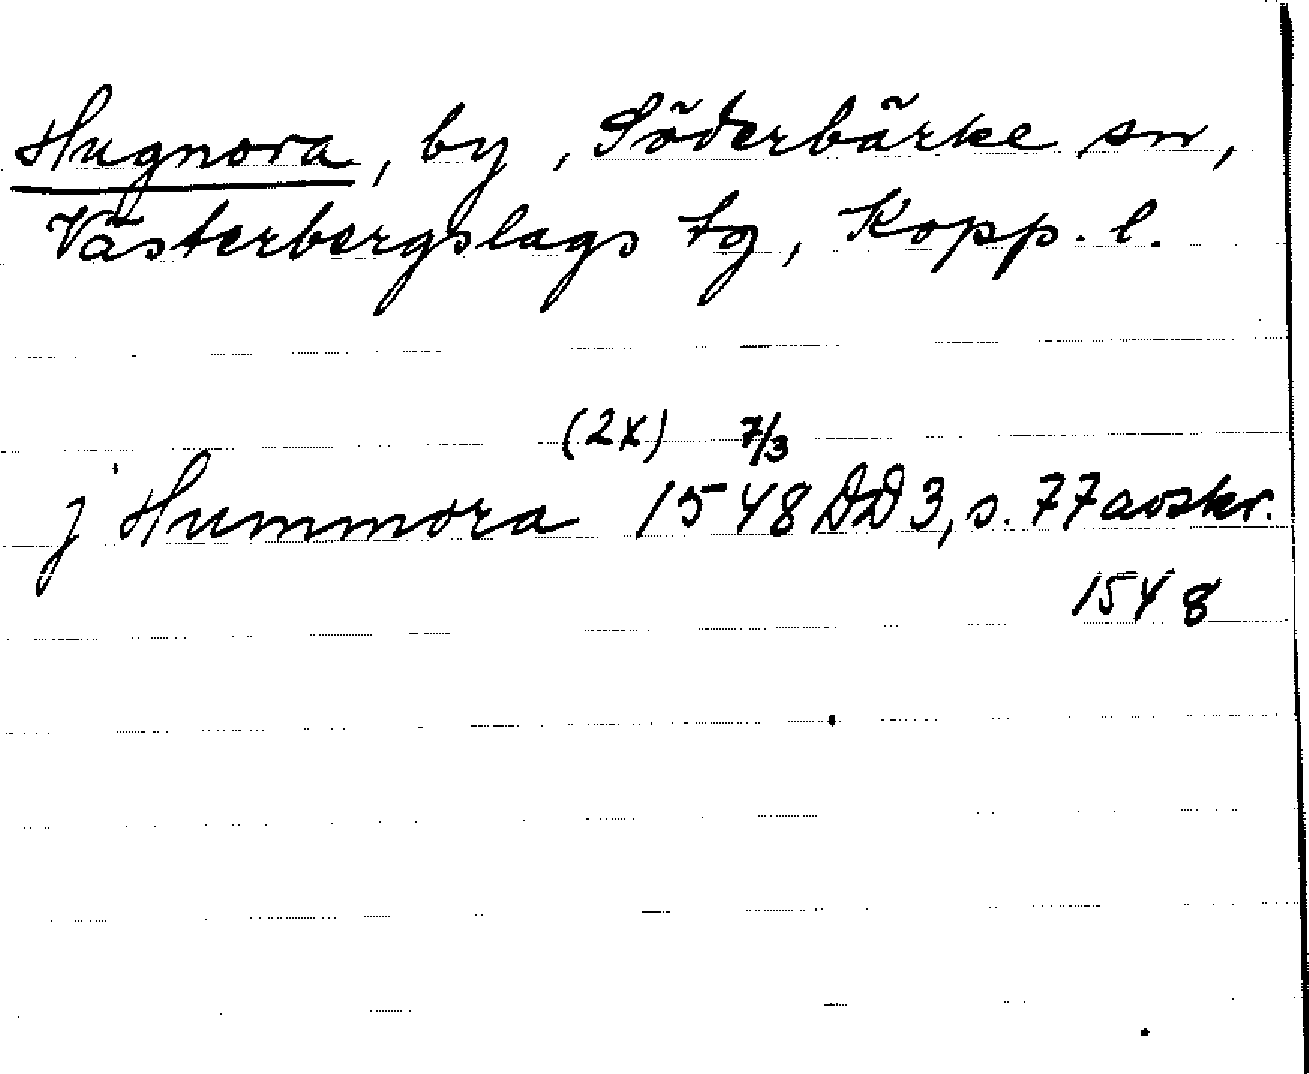 Hugnora, by, Söderbärke sn,
Västerbergslags tg, Kopp. l.
(2x) 7/3
j Hummora 1548 DD 3, s. 77 avskr.
1548